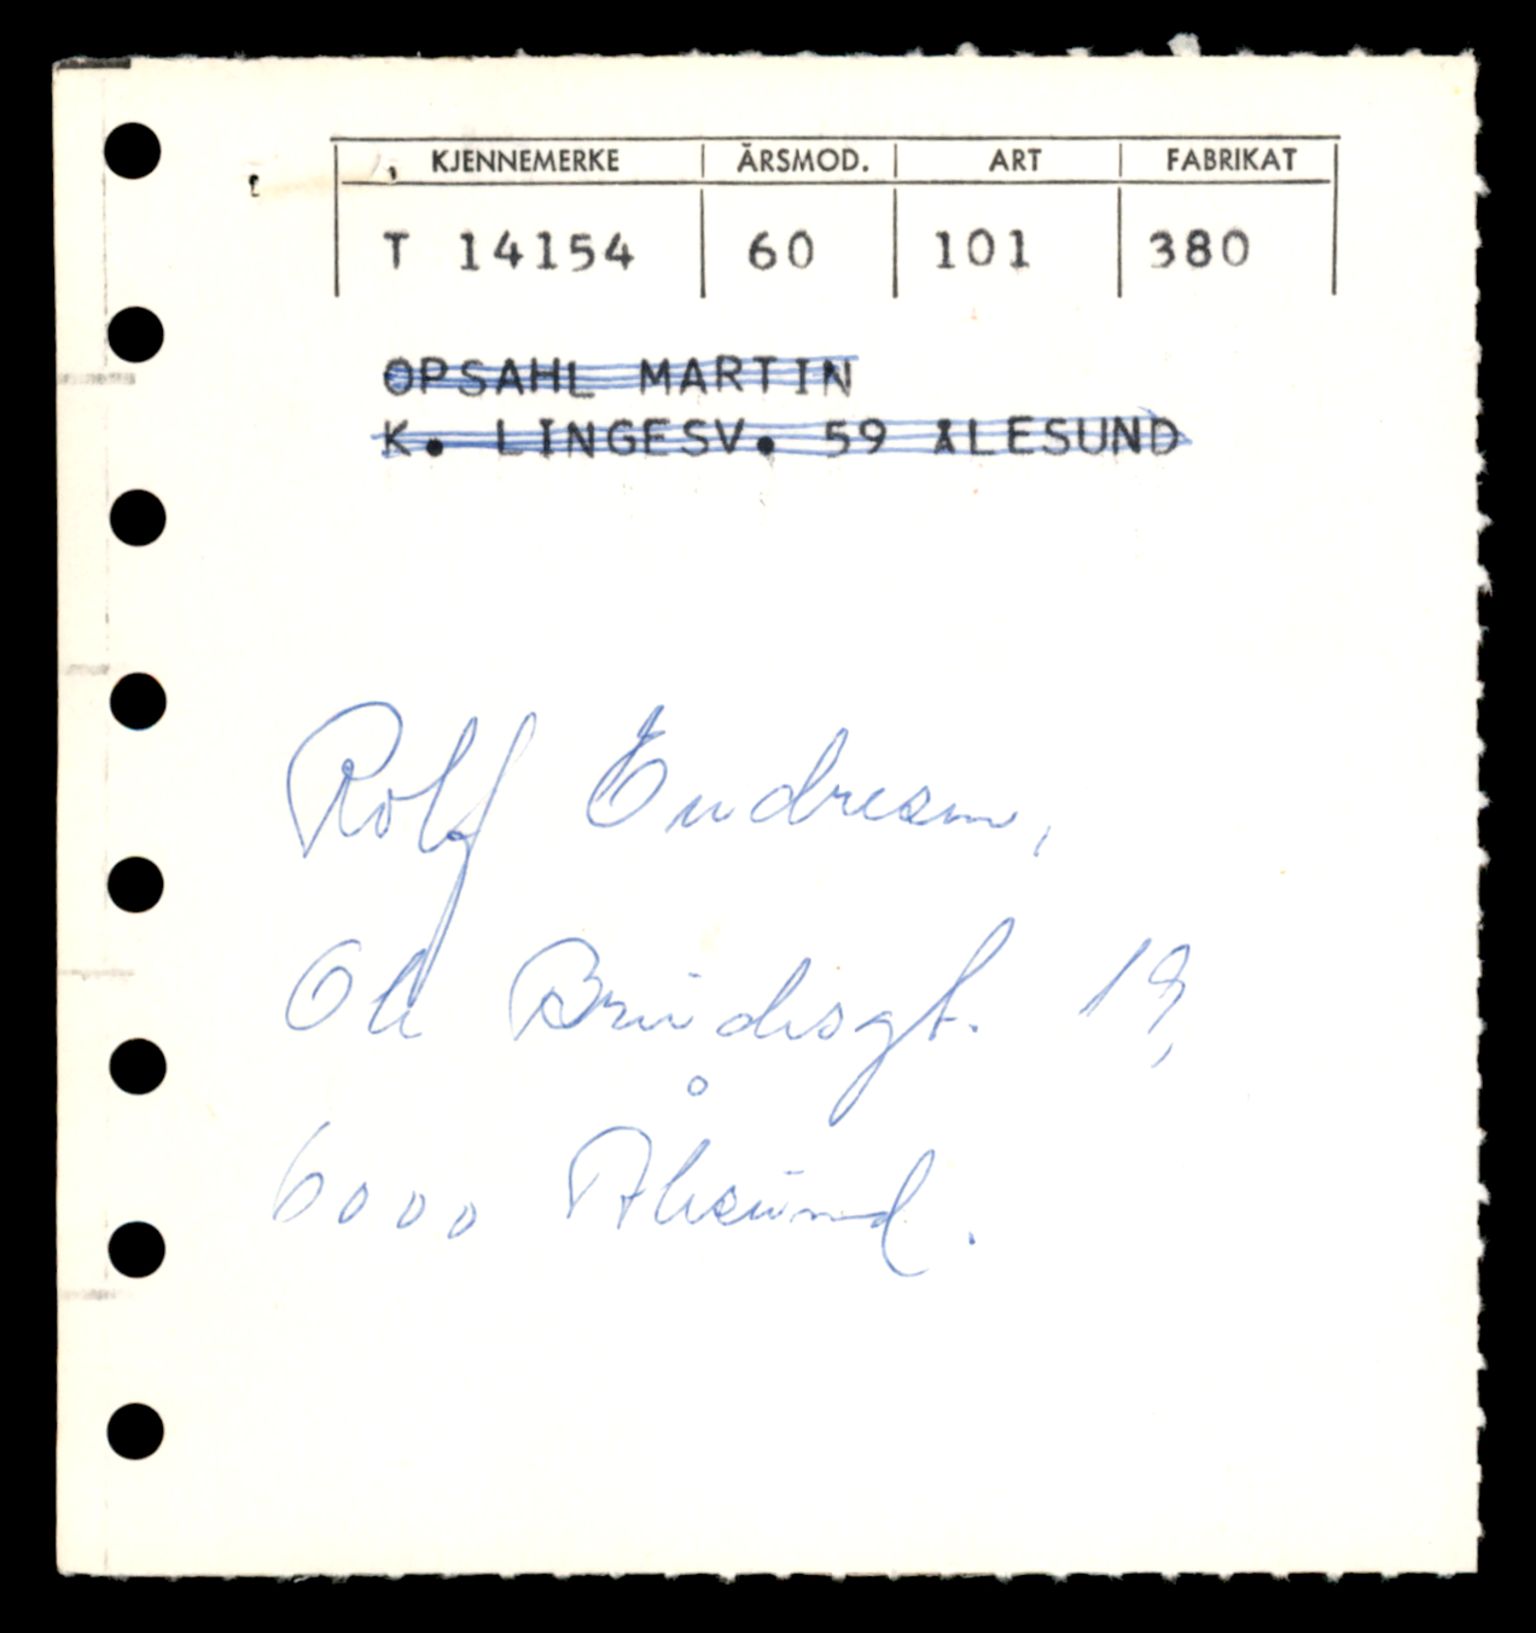 KJENNEMERKE ÅRSMOD. ART FABRIKAT
T 14154 60 101 380
OPSAHL MARTIN
K. LINGESV. 59 ÅLESUND
Rolf Endresen,
Ole 19,
6000 Ålesund.